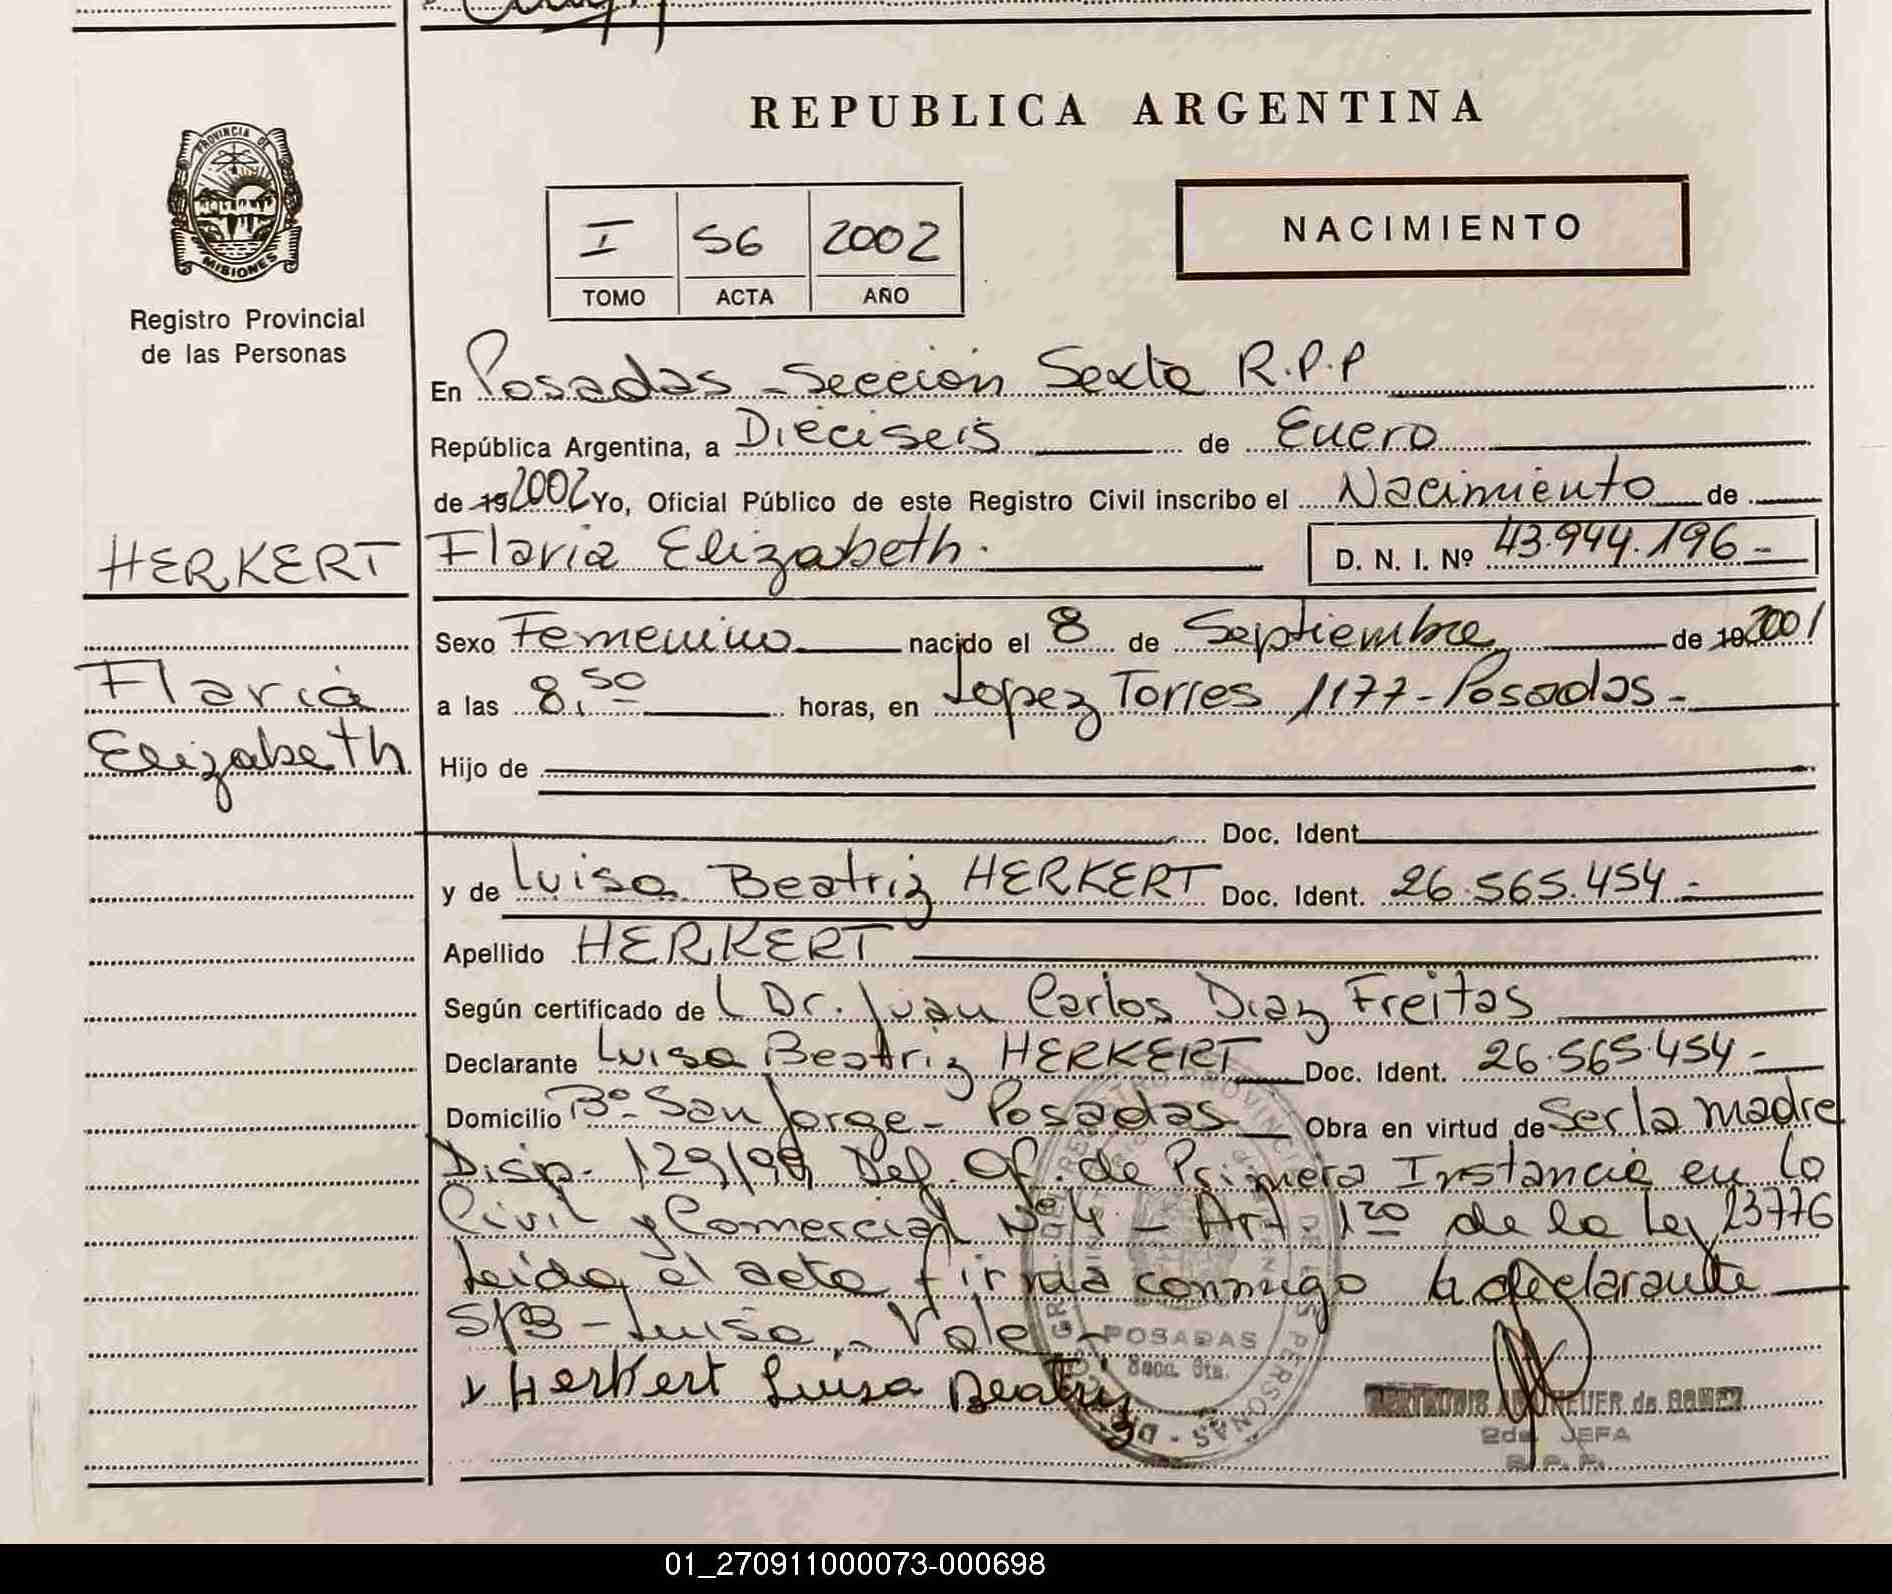 REPUBLICA ARGENTINA
PROVINCIA DE
MISIONES
Registro Provincial
de las Personas
I 56 2002
TOMO ACTA AÑO
NACIMIENTO
En Posadas - Sección Sexta R.P.P
República Argentina, a Dieciseis de Enero
de 19 2002 Yo, Oficial Público de este Registro Civil inscribo el Nacimiento de
HERKERT
Flavia Elizabeth. D. N. I. Nº 43.944.196-
Sexo Femenino nacido el 8 de Septiembre de 19 2001
Flavia
a las 8,50 horas, en Lopez Torres 1177 - Posadas-
Elizabeth
Hijo de
Doc. Ident.
y de Luisa Beatriz HERKERT Doc. Ident. 26.565.454-
Apellido HERKERT
Según certificado de Dr. Juan Carlos Diaz Freitas
Declarante Luisa Beatriz HERKERT Doc. Ident. 26.565.454-
Domicilio Bº San Jorge - Posadas Obra en virtud de Ser la madre
Disp. 129/99 Def. Of. de Primera Instancia en lo
Civil y Comercial Nº 4 - Art 1ro de la Ley 23776
Leida el acta firma conmigo la declarante
S/B - Luisa - Vale -
POSADAS
Secc. 6ta.
Herkert Luisa Beatriz
de GOMEZ
2da. JEFA
R. P. P.
01_270911000073-000698